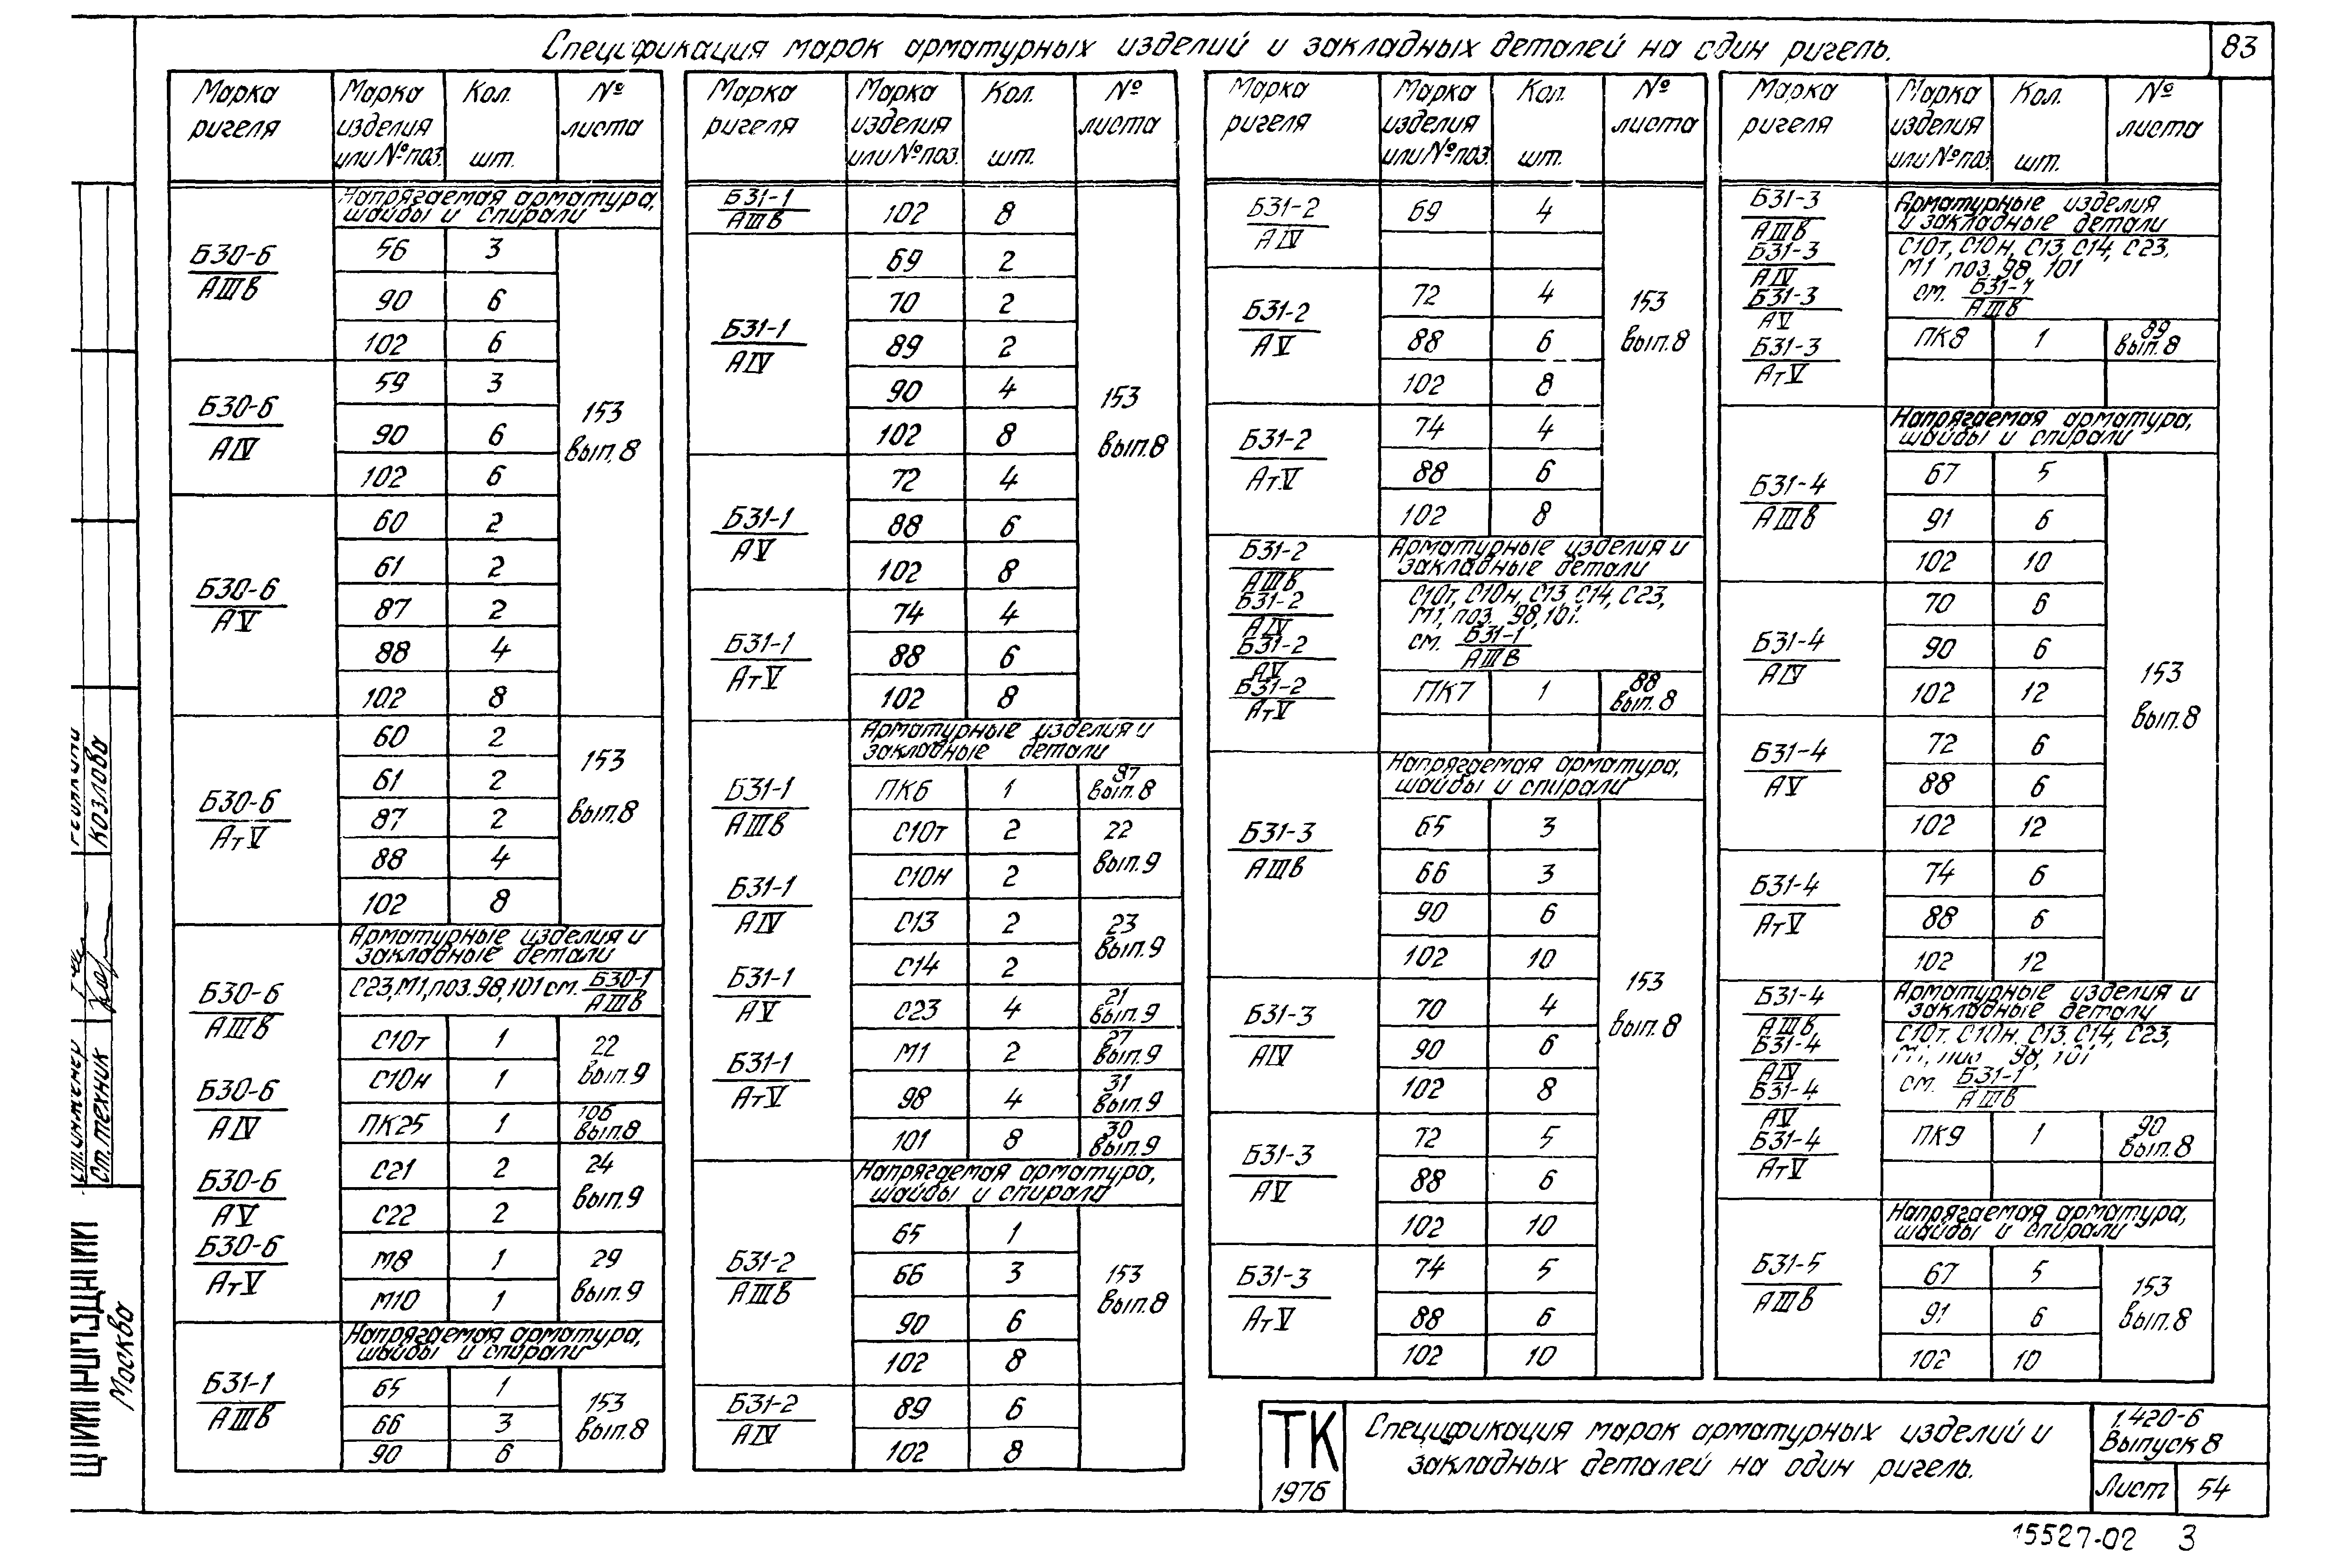 Спецификация марок арматурных изделий и закладных деталей на один ригель.
83
Марка ригеля | Марка изделия или № поз. | Кол. шт. | № листа
Напрягаемая арматура, шайбы и спирали
Б30-6 / АIIIв
56 3
90 6
102 6
Б30-6 / АIV
59 3
90 6
102 6
153 вып.8
Б30-6 / АV
60 2
61 2
87 2
88 4
102 8
Б30-6 / АтV
60 2
61 2
87 2
88 4
102 8
153 вып.8
Арматурные изделия и закладные детали
Б30-6 / АIIIв
Б30-6 / АIV
Б30-6 / АV
Б30-6 / АтV
С23, М1, поз. 98, 101 см. Б30-1 / АIIIв
С10т 1
С10н 1
22 вып.9
ПК25 1 106 вып.8
С21 2
С22 2
24 вып.9
М8 1
М10 1
29 вып.9
Напрягаемая арматура, шайбы и спирали
Б31-1 / АIIIв
65 1
66 3
90 6
153 вып.8
Марка ригеля | Марка изделия или № поз. | Кол. шт. | № листа
Б31-1 / АIIIв
102 8
Б31-1 / АIV
69 2
70 2
89 2
90 4
102 8
153 вып.8
Б31-1 / АV
72 4
88 6
102 8
Б31-1 / АтV
74 4
88 6
102 8
Арматурные изделия и закладные детали
Б31-1 / АIIIв
Б31-1 / АIV
Б31-1 / АV
Б31-1 / АтV
ПК6 1 87 вып.8
С10т 2
С10н 2
22 вып.9
С13 2
С14 2
23 вып.9
С23 4 21 вып.9
М1 2 27 вып.9
98 4 31 вып.9
101 8 30 вып.9
Напрягаемая арматура, шайбы и спирали
Б31-2 / АIIIв
65 1
66 3
90 6
102 8
153 вып.8
Б31-2 / АIV
89 6
102 8
Марка ригеля | Марка изделия или № поз. | Кол. шт. | № листа
Б31-2 / АIV
69 4
Б31-2 / АV
72 4
88 6
102 8
153 вып.8
Б31-2 / Ат.V
74 4
88 6
102 8
Арматурные изделия и закладные детали
Б31-2 / АIIIв
Б31-2 / АIV
Б31-2 / АV
Б31-2 / АтV
С10т, С10н, С13, С14, С23,
М1, поз. 98, 101.
см. Б31-1 / АIIIв
ПК7 1 88 вып.8
Напрягаемая арматура, шайбы и спирали
Б31-3 / АIIIв
65 3
66 3
90 6
102 10
Б31-3 / АIV
70 4
90 6
102 8
153 вып.8
Б31-3 / АV
72 5
88 6
102 10
Б31-3 / АтV
74 5
88 6
102 10
Марка ригеля | Марка изделия или № поз. | Кол. шт. | № листа
Арматурные изделия и закладные детали
Б31-3 / АIIIв
Б31-3 / АIV
Б31-3 / АV
Б31-3 / АтV
С10т, С10н, С13, С14, С23,
М1 поз. 98, 101
см. Б31-1 / АIIIв
ПК8 1 89 вып.8
Напрягаемая арматура, шайбы и спирали
Б31-4 / АIIIв
67 5
91 6
102 10
Б31-4 / АIV
70 6
90 6
102 12
153 вып.8
Б31-4 / АV
72 6
88 6
102 12
Б31-4 / АтV
74 6
88 6
102 12
Арматурные изделия и закладные детали
Б31-4 / АIIIв
Б31-4 / АIV
Б31-4 / АV
Б31-4 / АтV
С10т, С10н, С13, С14, С23,
М1, 98, 101
см. Б31-1 / АIIIв
ПК9 1 90 вып.8
Напрягаемая арматура, шайбы и спирали
Б31-5 / АIIIв
67 5
91 6
102 10
153 вып.8
ТК
1976
Спецификация марок арматурных изделий и
закладных деталей на один ригель.
1.420-6
Выпуск 8
Лист 54
15527-02 3
Козлова
Ст.инженер
Ст.техник
Москва